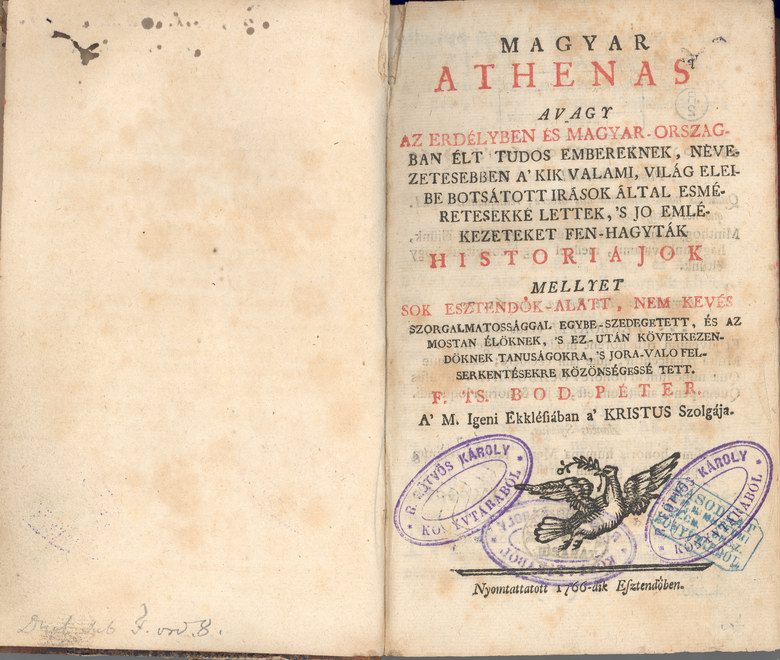 MAGYAR
ATHENAS
AVAGY
AZ ERDÉLYBEN ÉS MAGYAR-ORSZÁG-
BAN ÉLT TUDOS EMBEREKNEK, NEVE-
ZETESEBBEN A' KIK VALAMI, VILÁG ELEI-
BE BOTSÁTOTT IRÁSOK ÁLTAL ESMÉ-
RETESEKKÉ LETTEK, 'S JO EMLÉ-
KEZETEKET FEN-HAGYTÁK
HISTORIÁJOK
MELLYET
SOK ESZTENDŐK-ALATT, NEM KEVÉS
SZORGALMATOSSÁGGAL EGYBE-SZEDEGETETT, ÉS AZ
MOSTAN ÉLŐKNEK, 'S EZ-UTÁN KÖVETKEZEN-
DŐKNEK TANUSÁGOKRA, 'S JORA-VALO FEL-
SERKENTÉSEKRE KÖZÖNSÉGESSÉ TETT.
F. TS. BOD. PÉTER
A' M. Igeni Ekklésiában a' KRISTUS Szolgája.
R. EÖTVÖS KÁROLY
KÖNYVTÁRÁBÓL
R. EÖTVÖS KÁROLY
KÖNYVTÁRÁBÓL
Nyomtattatott 1766-dik Esztendőben.
F. ord. 8.